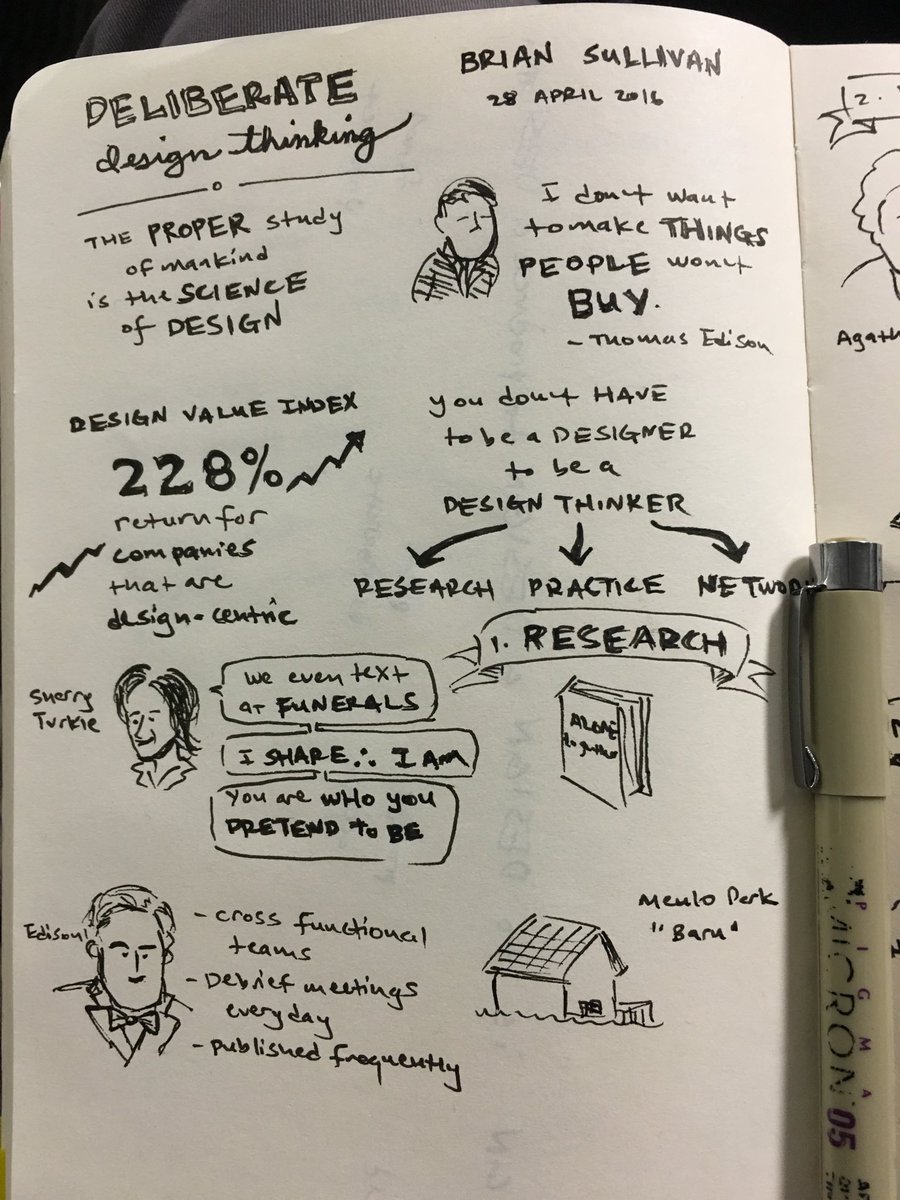 DELIBERATE
design thinking
BRIAN SULLIVAN
28 APRIL 2016
THE PROPER study
of mankind
is the SCIENCE
of DESIGN
I don't want
to make THINGS
PEOPLE won't
BUY.
- Thomas Edison
DESIGN VALUE INDEX
228%
return for
companies
that are
design-centric
you don't HAVE
to be a DESIGNER
to be a
DESIGN THINKER
RESEARCH PRACTICE NETWORK
1. RESEARCH
Sherry
Turkle
we even text
AT FUNERALS
I SHARE ∴ I AM
You are WHO you
PRETEND to BE
ALONE
together
Edison
- cross functional
teams
- Debrief meetings
everyday
- published frequently
Menlo Park
"Barn"
2.
Agath
PIGMA
MICRON 05